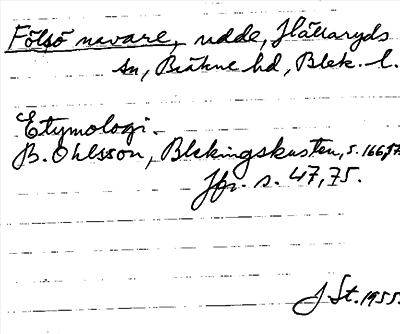 Fölsö navare, udde, Hällaryds
sn, Bräkne hd, Blek. l.
Etymologi.
B. Ohlsson, Blekingskusten, s. 166, 
Jfr. s. 47, 75.
J St. 1955.